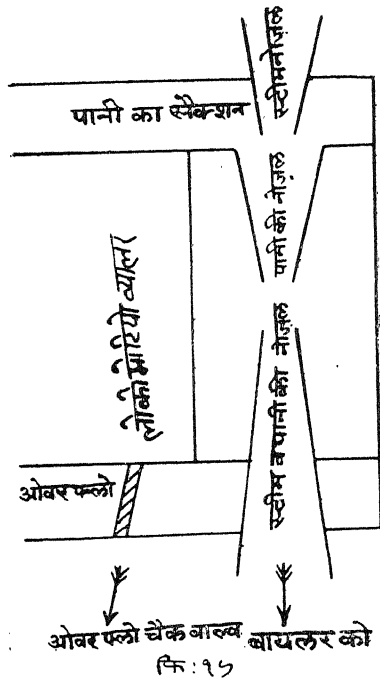 स्टीम नोज़ल
पानी का सैक्शन
पानी की नोज़ल
लोकोमोटियो ब्यालर
स्टीम व पानी की नोज़ल
ओवर फ्लो
ओवर फ्लो चैक वाल्व
बायलर को